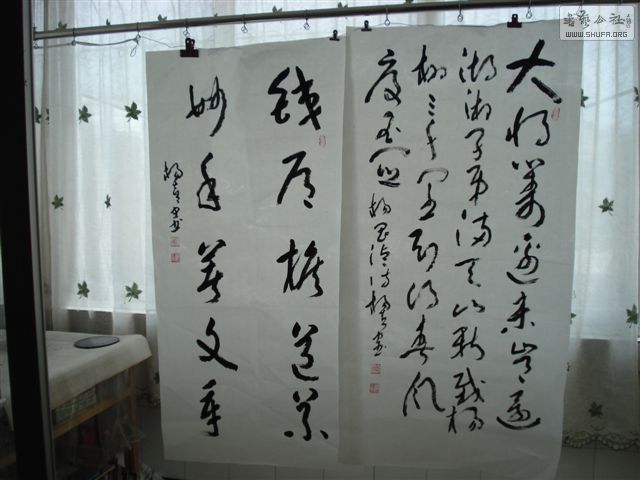 大将筹边未肯还
湖湘子弟满天山新栽杨
柳三千里引得春风
度玉关 杨昌浚诗 书
铁肩擔道義
妙手著文章
书法公社
WWW.SHUFA.ORG